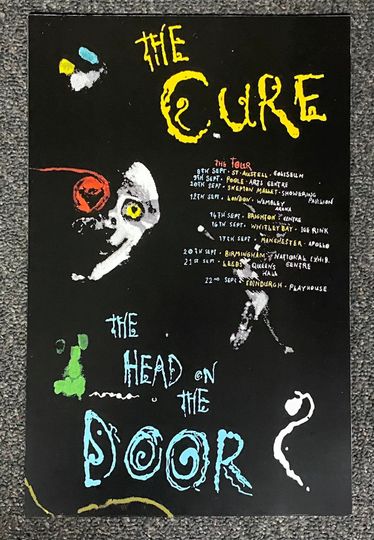 THE
CURE
THE TOUR
8TH SEPT · ST · AUSTELL · COLISEUM
9TH SEPT · POOLE · ARTS CENTRE
10TH SEPT · SHEPTON MALLET · SHOWERING PAVILION
12TH SEPT · LONDON · WEMBLEY ARENA
14TH SEPT · BRIGHTON · CENTRE
16TH SEPT · WHITLEY BAY · ICE RINK
17TH SEPT · MANCHESTER · APOLLO
20TH SEPT · BIRMINGHAM · NATIONAL EXHIB. CENTRE
21ST SEPT · LEEDS · QUEEN'S HALL
22ND SEPT · EDINBURGH · PLAYHOUSE
THE
HEAD ON
THE
DOOR